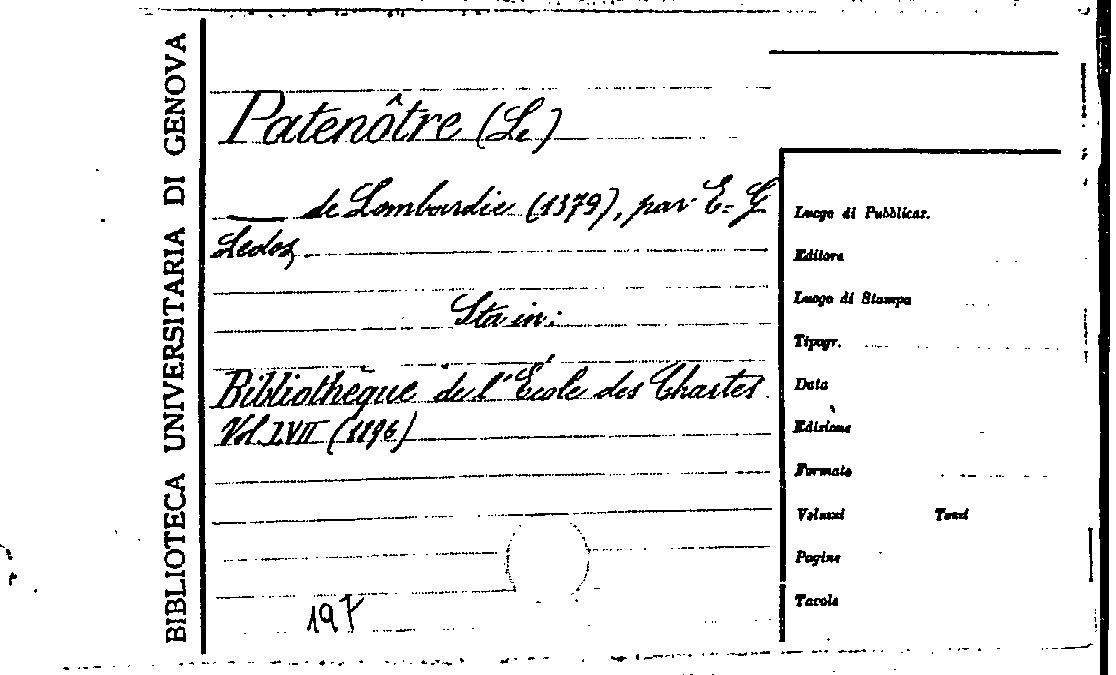 BIBLIOTECA UNIVERSITARIA DI GENOVA
Patenôtre (Le)
de Lombardie (1379), par E-G
Ledos,
Sta in:
Bibliothèque de l'École des Chartes
Vol. LVII (1896)
197
Luogo di Pubblicaz.
Editore
Luogo di Stampa
Tipogr.
Data
Edizione
Formato
Volumi Tomi
Pagine
Tavole